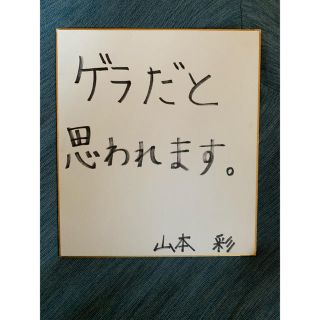 ゲラだと
思われます。
山本 彩